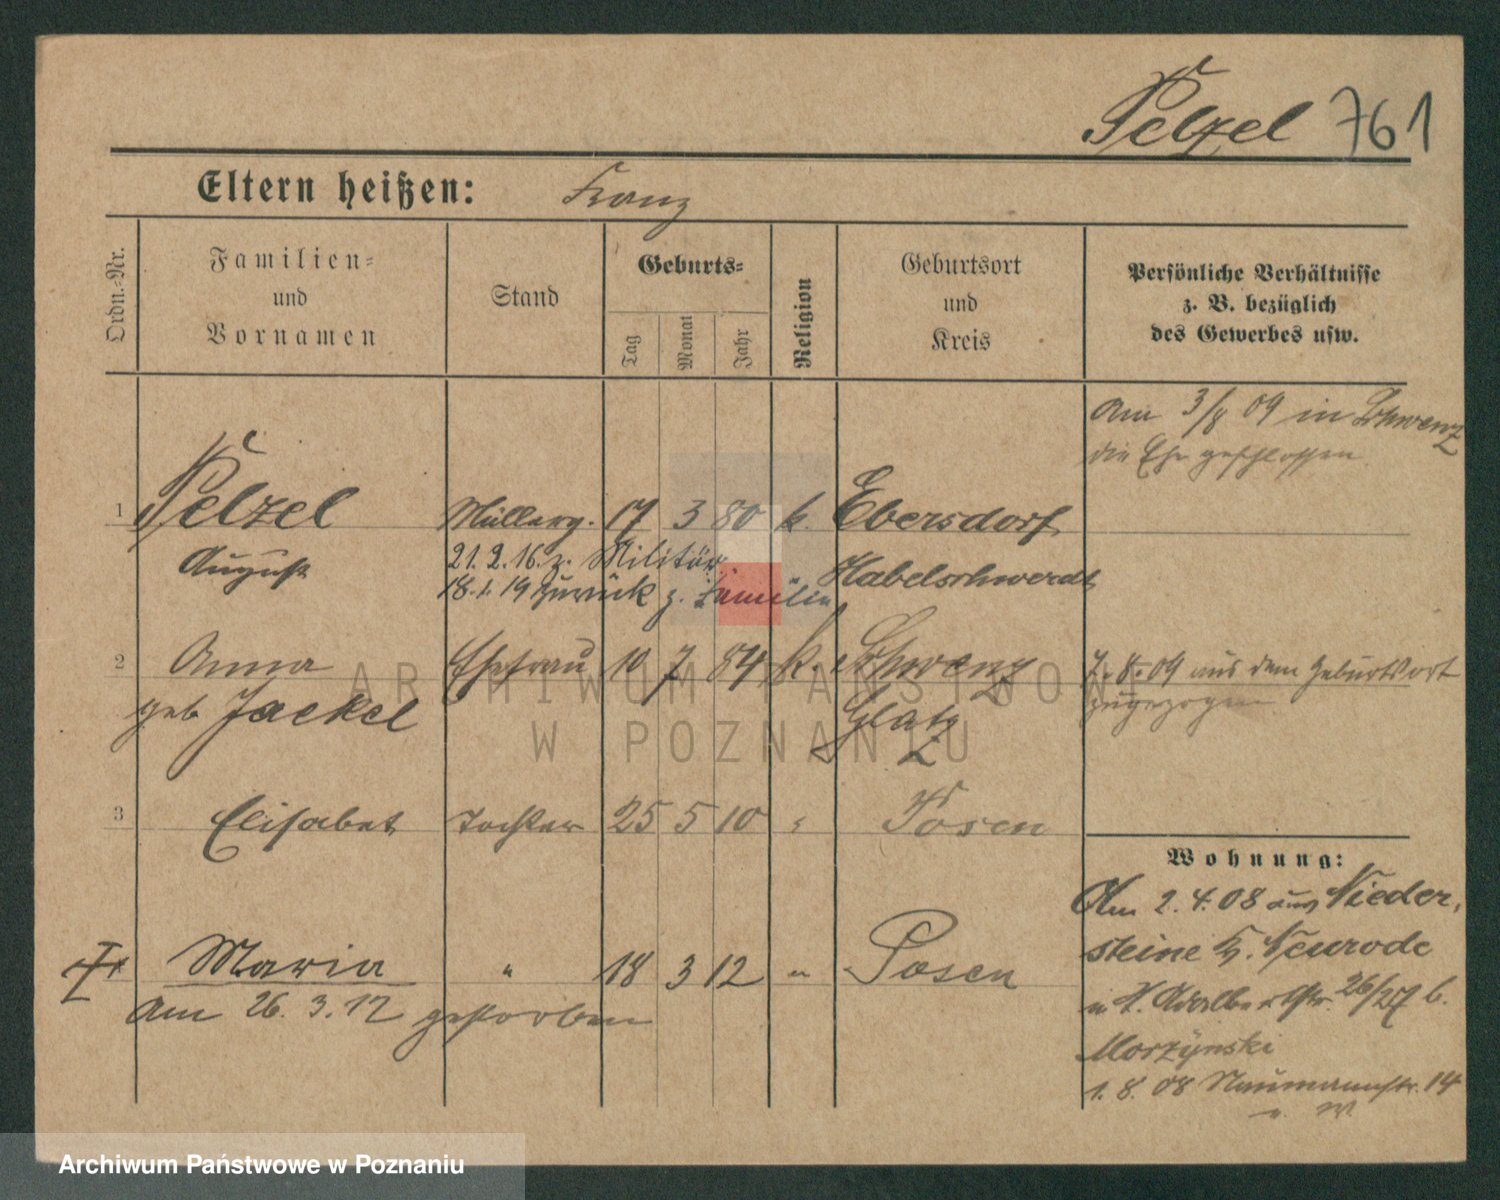 Pelzel 761
Eltern heißen: Franz
Ordn.-Nr.
Familien-
und
Vornamen
Stand
Geburts-
Tag
Monat
Jahr
Religion
Geburtsort
und
Kreis
Persönliche Verhältnisse
z. B. bezüglich
des Gewerbes usw.
Am 3/8 09 in Schwenz
die Ehe geschlossen
1 Pelzel Müllerg. 17 3 80 k. Ebersdorf
August 21. 2. 16. z. Militär Habelschwerdt
18. 1. 19 zurück z. Familie
2 Anna Ehefrau 10 7 84 k. Schwenz
geb Jaekel Glatz
7. 8. 09 aus dem Geburtsort
zugezogen
3 Elisabet Tochter 25 5 10 " Posen
Maria " 18 3 12 " Posen
Am 26. 3. 12 gestorben
Wohnung:
Am 2. 4. 08 aus Nieder-
steine Neurode
Adalbertstr. 26/27 b.
Morzynski
1. 8. 08 Naumannstr. 14
ARCHIWUM PAŃSTWOWE
W POZNANIU
Archiwum Państwowe w Poznaniu